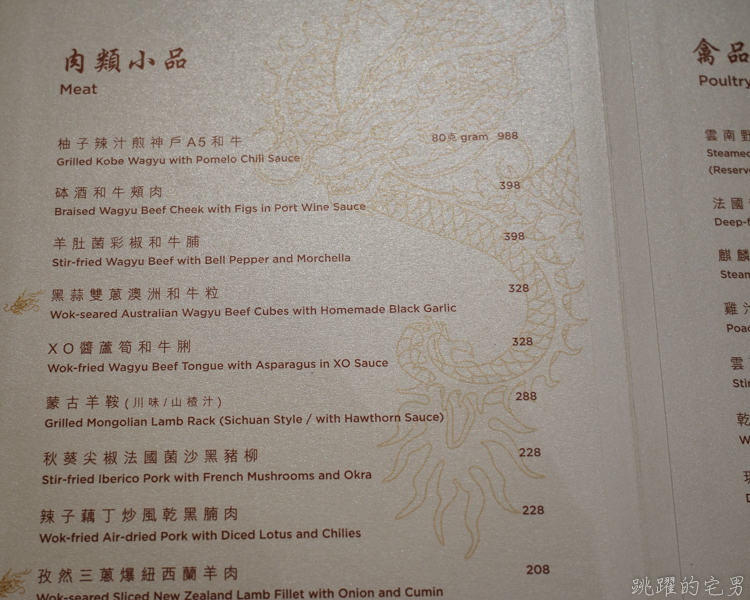 肉類小品
Meat
柚子辣汁煎神戶A5和牛 80克 gram 988
Grilled Kobe Wagyu with Pomelo Chili Sauce
砵酒和牛頰肉 398
Braised Wagyu Beef Cheek with Figs in Port Wine Sauce
羊肚菌彩椒和牛脯 398
Stir-fried Wagyu Beef with Bell Pepper and Morchella
黑蒜雙蔥澳洲和牛粒 328
Wok-seared Australian Wagyu Beef Cubes with Homemade Black Garlic
XO醬蘆筍和牛脷 328
Wok-fried Wagyu Beef Tongue with Asparagus in XO Sauce
蒙古羊鞍(川味/山楂汁) 288
Grilled Mongolian Lamb Rack (Sichuan Style / with Hawthorn Sauce)
秋葵尖椒法國菌沙黑豬柳 228
Stir-fried Iberico Pork with French Mushrooms and Okra
辣子藕丁炒風乾黑腩肉 228
Wok-fried Air-dried Pork with Diced Lotus and Chilies
孜然三蔥爆紐西蘭羊肉 208
Wok-seared Sliced New Zealand Lamb Fillet with Onion and Cumin
禽品
Poultry
雲南野
Steamed
(Reserve
法國
Deep-f
麒麟
Steam
雞汁
Poac
雲
Sti
乾
W
跳躍的宅男